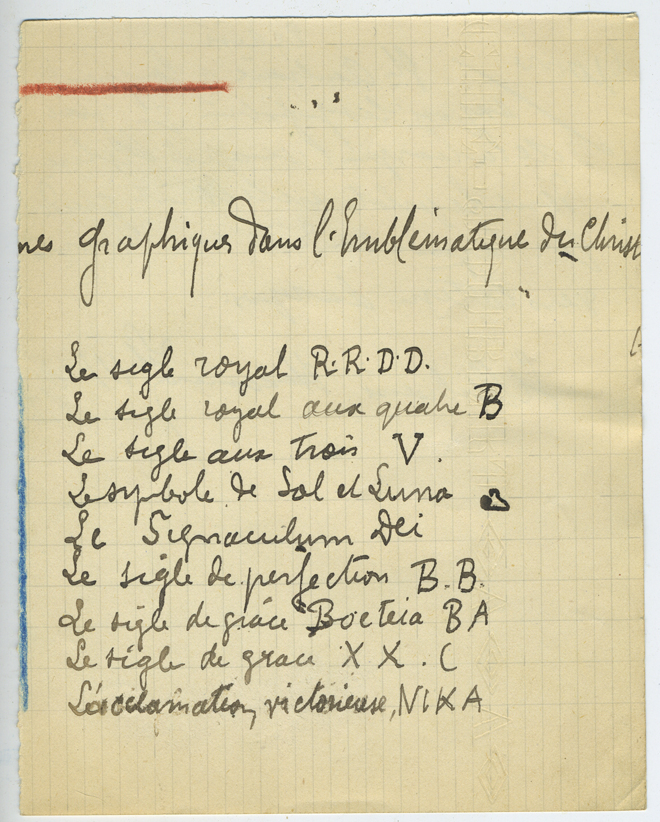 nes graphiques dans l'Emblématique du Christ
Le sigle royal R.R.D.D.
Le sigle royal aux quatre B
Le sigle aux trois V.
Le sybole de Sol et Luna
Le Signaculum Dei
Le sigle de perfection B.B.
Le sigle de grâce "Boeteia B A
Le sigle de grace X X . C
L'acclamation, victorieuse, NIKA